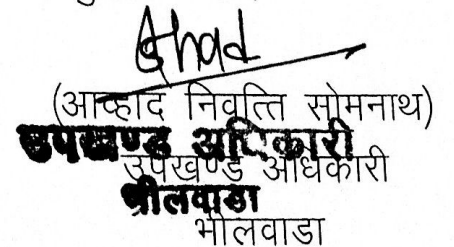 Ahad
(आव्हाद निवृत्ति सोमनाथ)
उपखण्ड अधिकारी
उपखण्ड अधिकारी
भीलवाडा
भीलवाडा